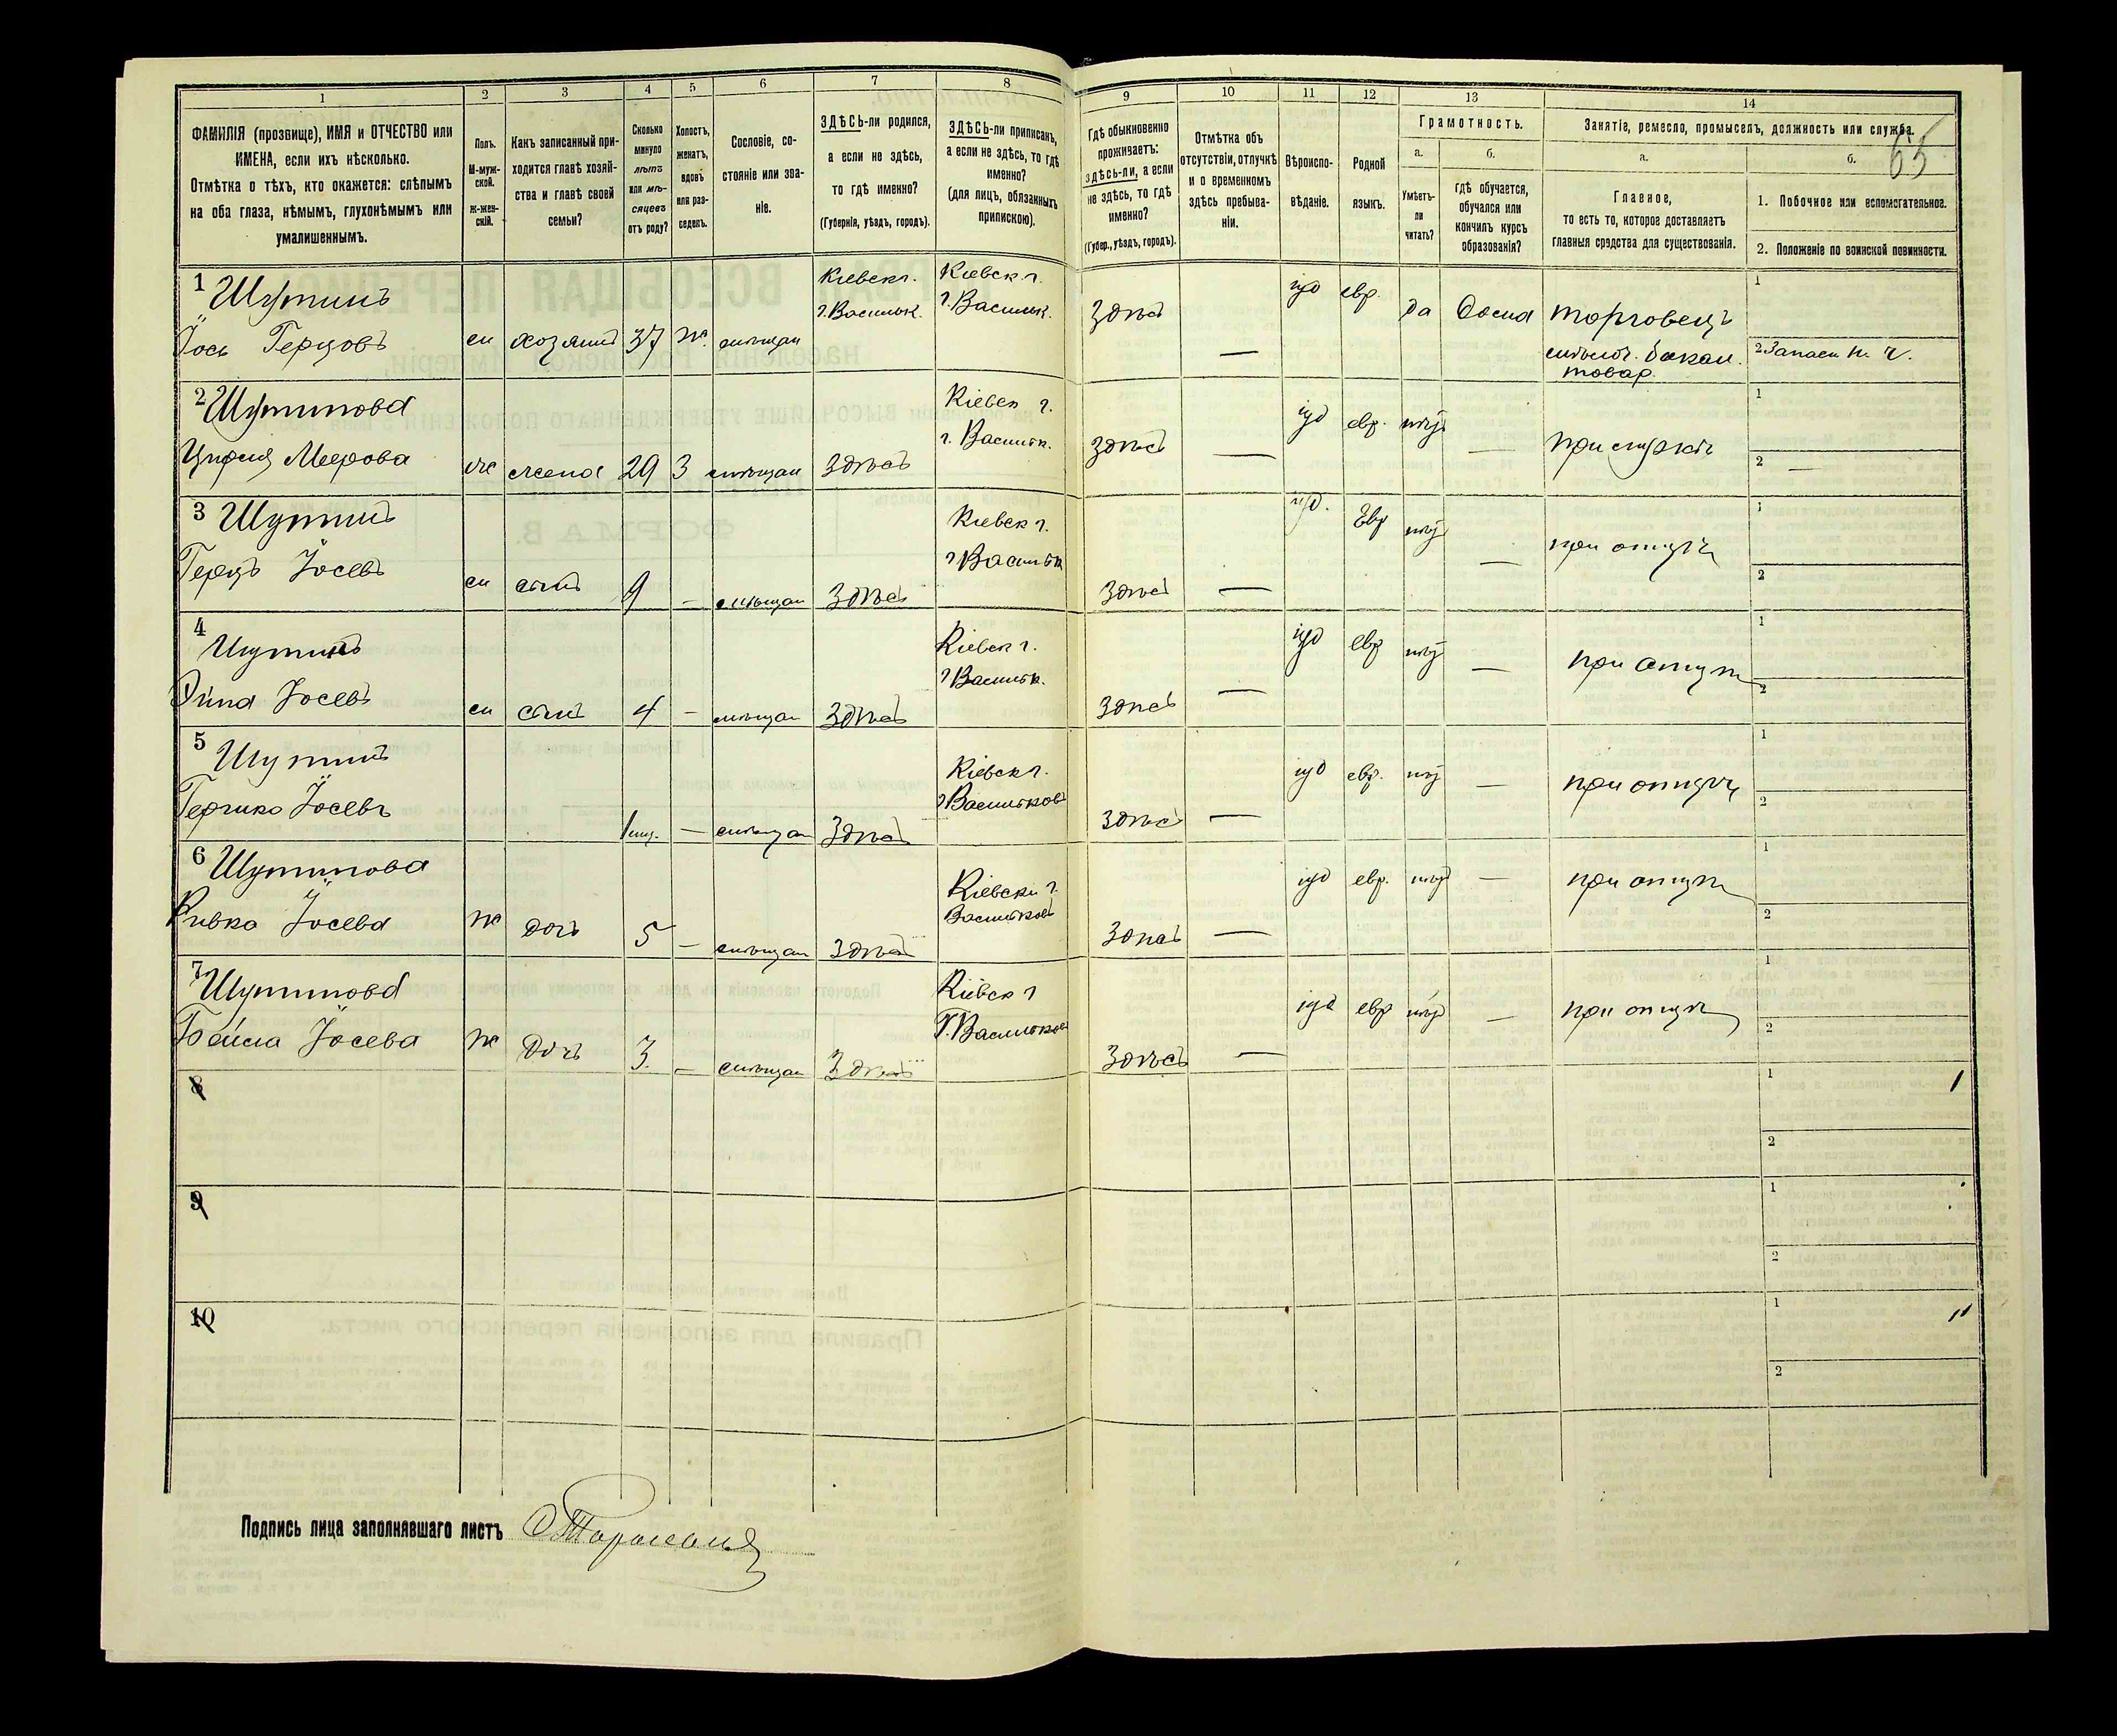 1 2 3 4 5 6 7 8 9 10 11 12 13 14
ФАМИЛІЯ (прозвище), ИМЯ и ОТЧЕСТВО или
ИМЕНА, если ихъ нѣсколько.
Отмѣтка о тѣхъ, кто окажется: слѣпымъ
на оба глаза, нѣмымъ, глухонѣмымъ или
умалишеннымъ.
Полъ.
М-муж-
ской.
Ж-жен-
скій.
Какъ записанный при-
ходится главѣ хозяй-
ства и главѣ своей
семьи?
Сколько
минуло
лѣтъ
или мѣ-
сяцевъ
отъ роду?
Холостъ,
женатъ,
вдовъ
или раз-
веденъ.
Сословіе, со-
стояніе или зва-
ніе.
ЗДѢСЬ-ли родился,
а если не здѣсь,
то гдѣ именно?
(Губернія, уѣздъ, городъ).
ЗДѢСЬ-ли приписанъ,
а если не здѣсь, то гдѣ
именно?
(для лицъ, обязанныхъ
припискою).
Гдѣ обыкновенно
проживаетъ:
здѣсь-ли, а если
не здѣсь, то гдѣ
именно?
(Губер., уѣздъ, городъ).
Отмѣтка объ
отсутствіи, отлучкѣ
и о временномъ
здѣсь пребыва-
ніи.
Вѣроиспо-
вѣданіе.
Родной
языкъ.
Грамотность.
а.
Умѣетъ-
ли
читать?
б.
гдѣ обучается,
обучался или
кончилъ курсъ
образованія?
Занятіе, ремесло, промыселъ, должность или служба.
65
а.
Главное,
то есть то, которое доставляетъ
главныя средства для существованія.
б.
1. Побочное или вспомогательное.
2. Положеніе по воинской повинности.
1 Шутинъ
Іось Герцовъ м хозяинъ 37 ж. мѣщан
Кіевск г.
г. Васильк.
Кіевск г.
г. Васильк.
здѣсь — іуд евр. да дома торговецъ
бакал.
товар.
1
2 Запасн
2 Шутинова
Меерова ж жена 29 з мѣщан здѣсь
Кіевск г.
г. Васильк.
здѣсь — іуд евр. нѣтъ — при мужѣ
1
2 —
3 Шутинъ
Герцъ Іосевъ м сынъ 9 — мѣщан здѣсь
Кіевск г.
г Васильк
здѣсь — іуд. Евр нѣтъ — при отцѣ
1
2
4
Шутинъ
Іосевъ м сынъ 4 — мѣщан здѣсь
Кіевск г.
г Васильк.
здѣсь — іуд евр нѣтъ — при отцѣ
1
2
5
Шутинъ
Іосевъ — мѣщан здѣсь
Кіевск г.
г Васильковъ
здѣсь — іуд евр. нѣтъ — при отцѣ
1
2
6 Шутинова
Ривка Іосева ж дочь 5 — мѣщан здѣсь
Кіевск г.
Васильковъ
здѣсь — іуд евр. нѣтъ — при отцѣ
1
2
7 Шутинова
Бейла Іосева ж дочь 3. — мѣщан здѣсь
Кіевск г
Г. Васильковъ
здѣсь — іуд евр нѣтъ — при отцѣ
1
2
8
1
2
9
1
2
10
1
2
Подпись лица заполнявшаго листъ